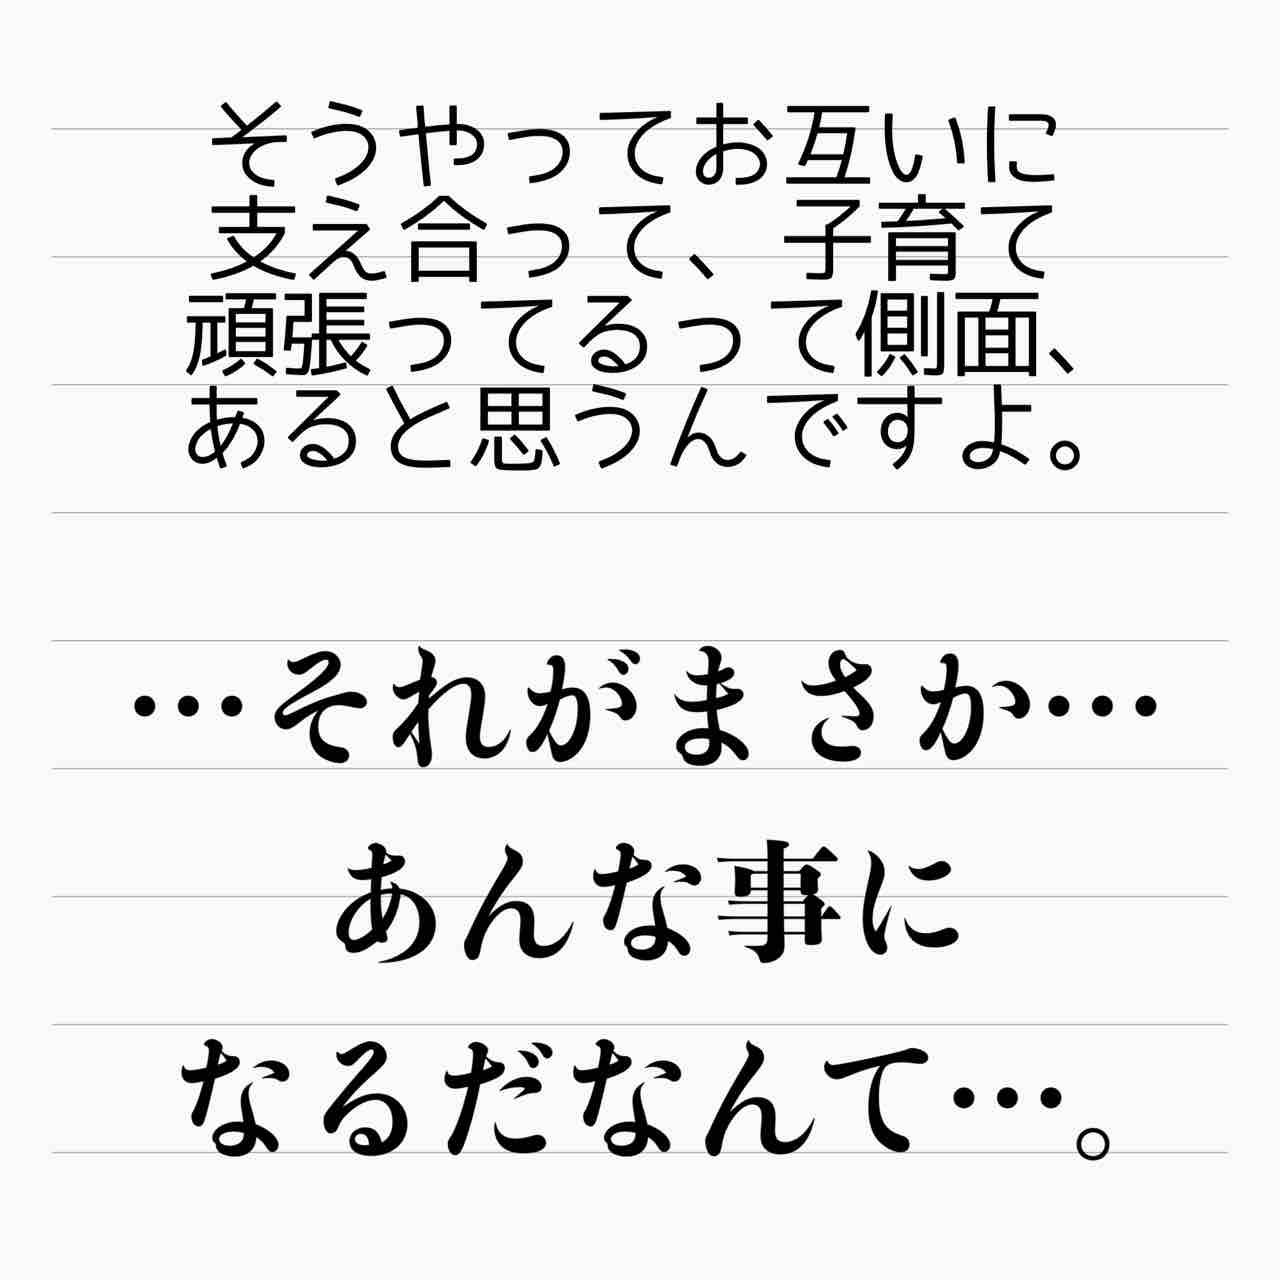 そうやってお互いに
支え合って、子育て
頑張ってるって側面、
あると思うんですよ。
…それがまさか…
あんな事に
なるだなんて…。